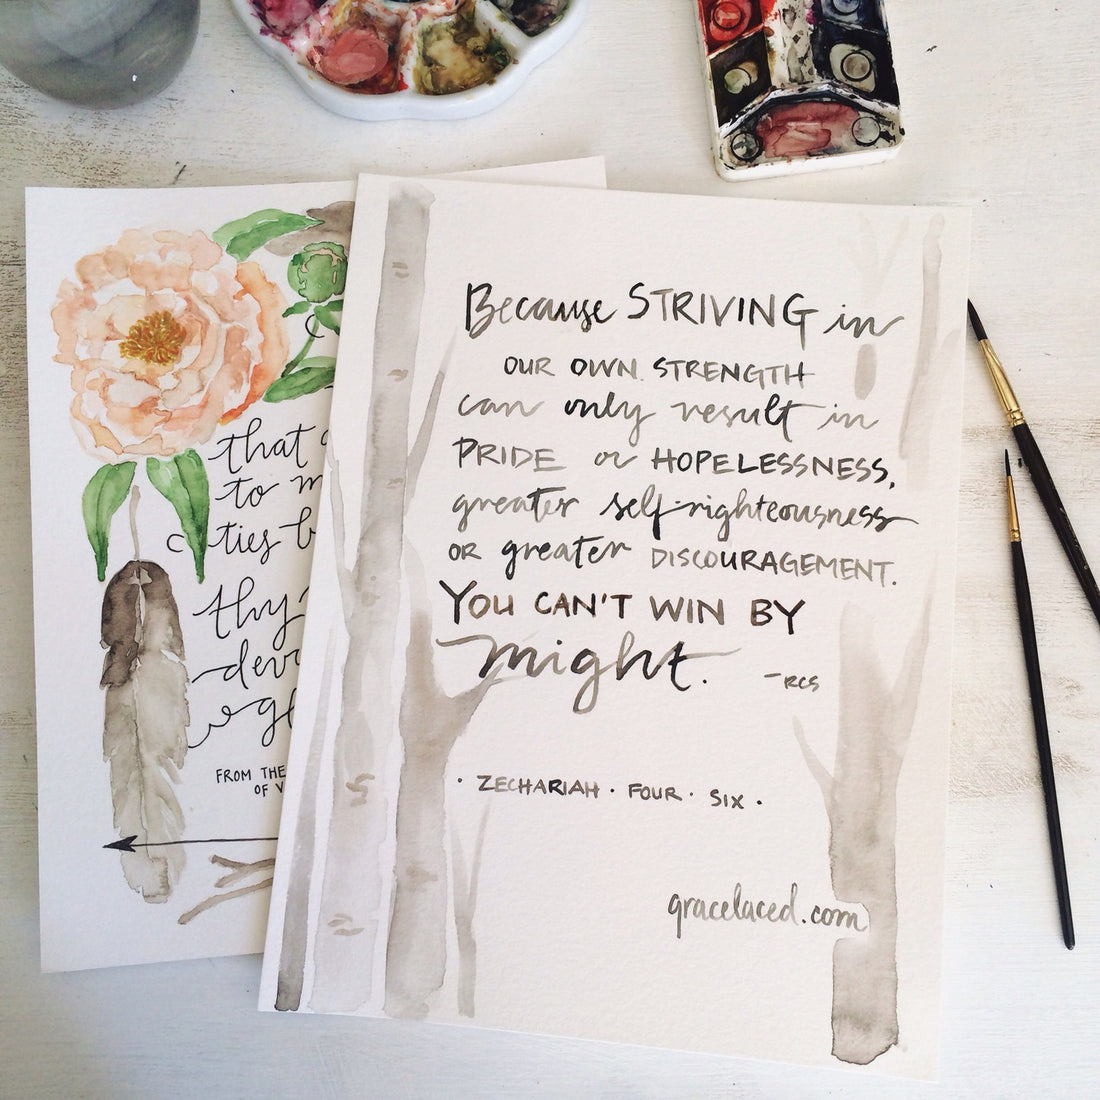 Because STRIVING in
OUR OWN STRENGTH
can only result in
PRIDE or HOPELESSNESS,
greater self-righteousness
OR greater DISCOURAGEMENT.
YOU CAN'T WIN BY
might.
-RCS
· ZECHARIAH · FOUR · SIX ·
gracelaced.com
that
to m
ties b
thy
dev
FROM THE
OF V